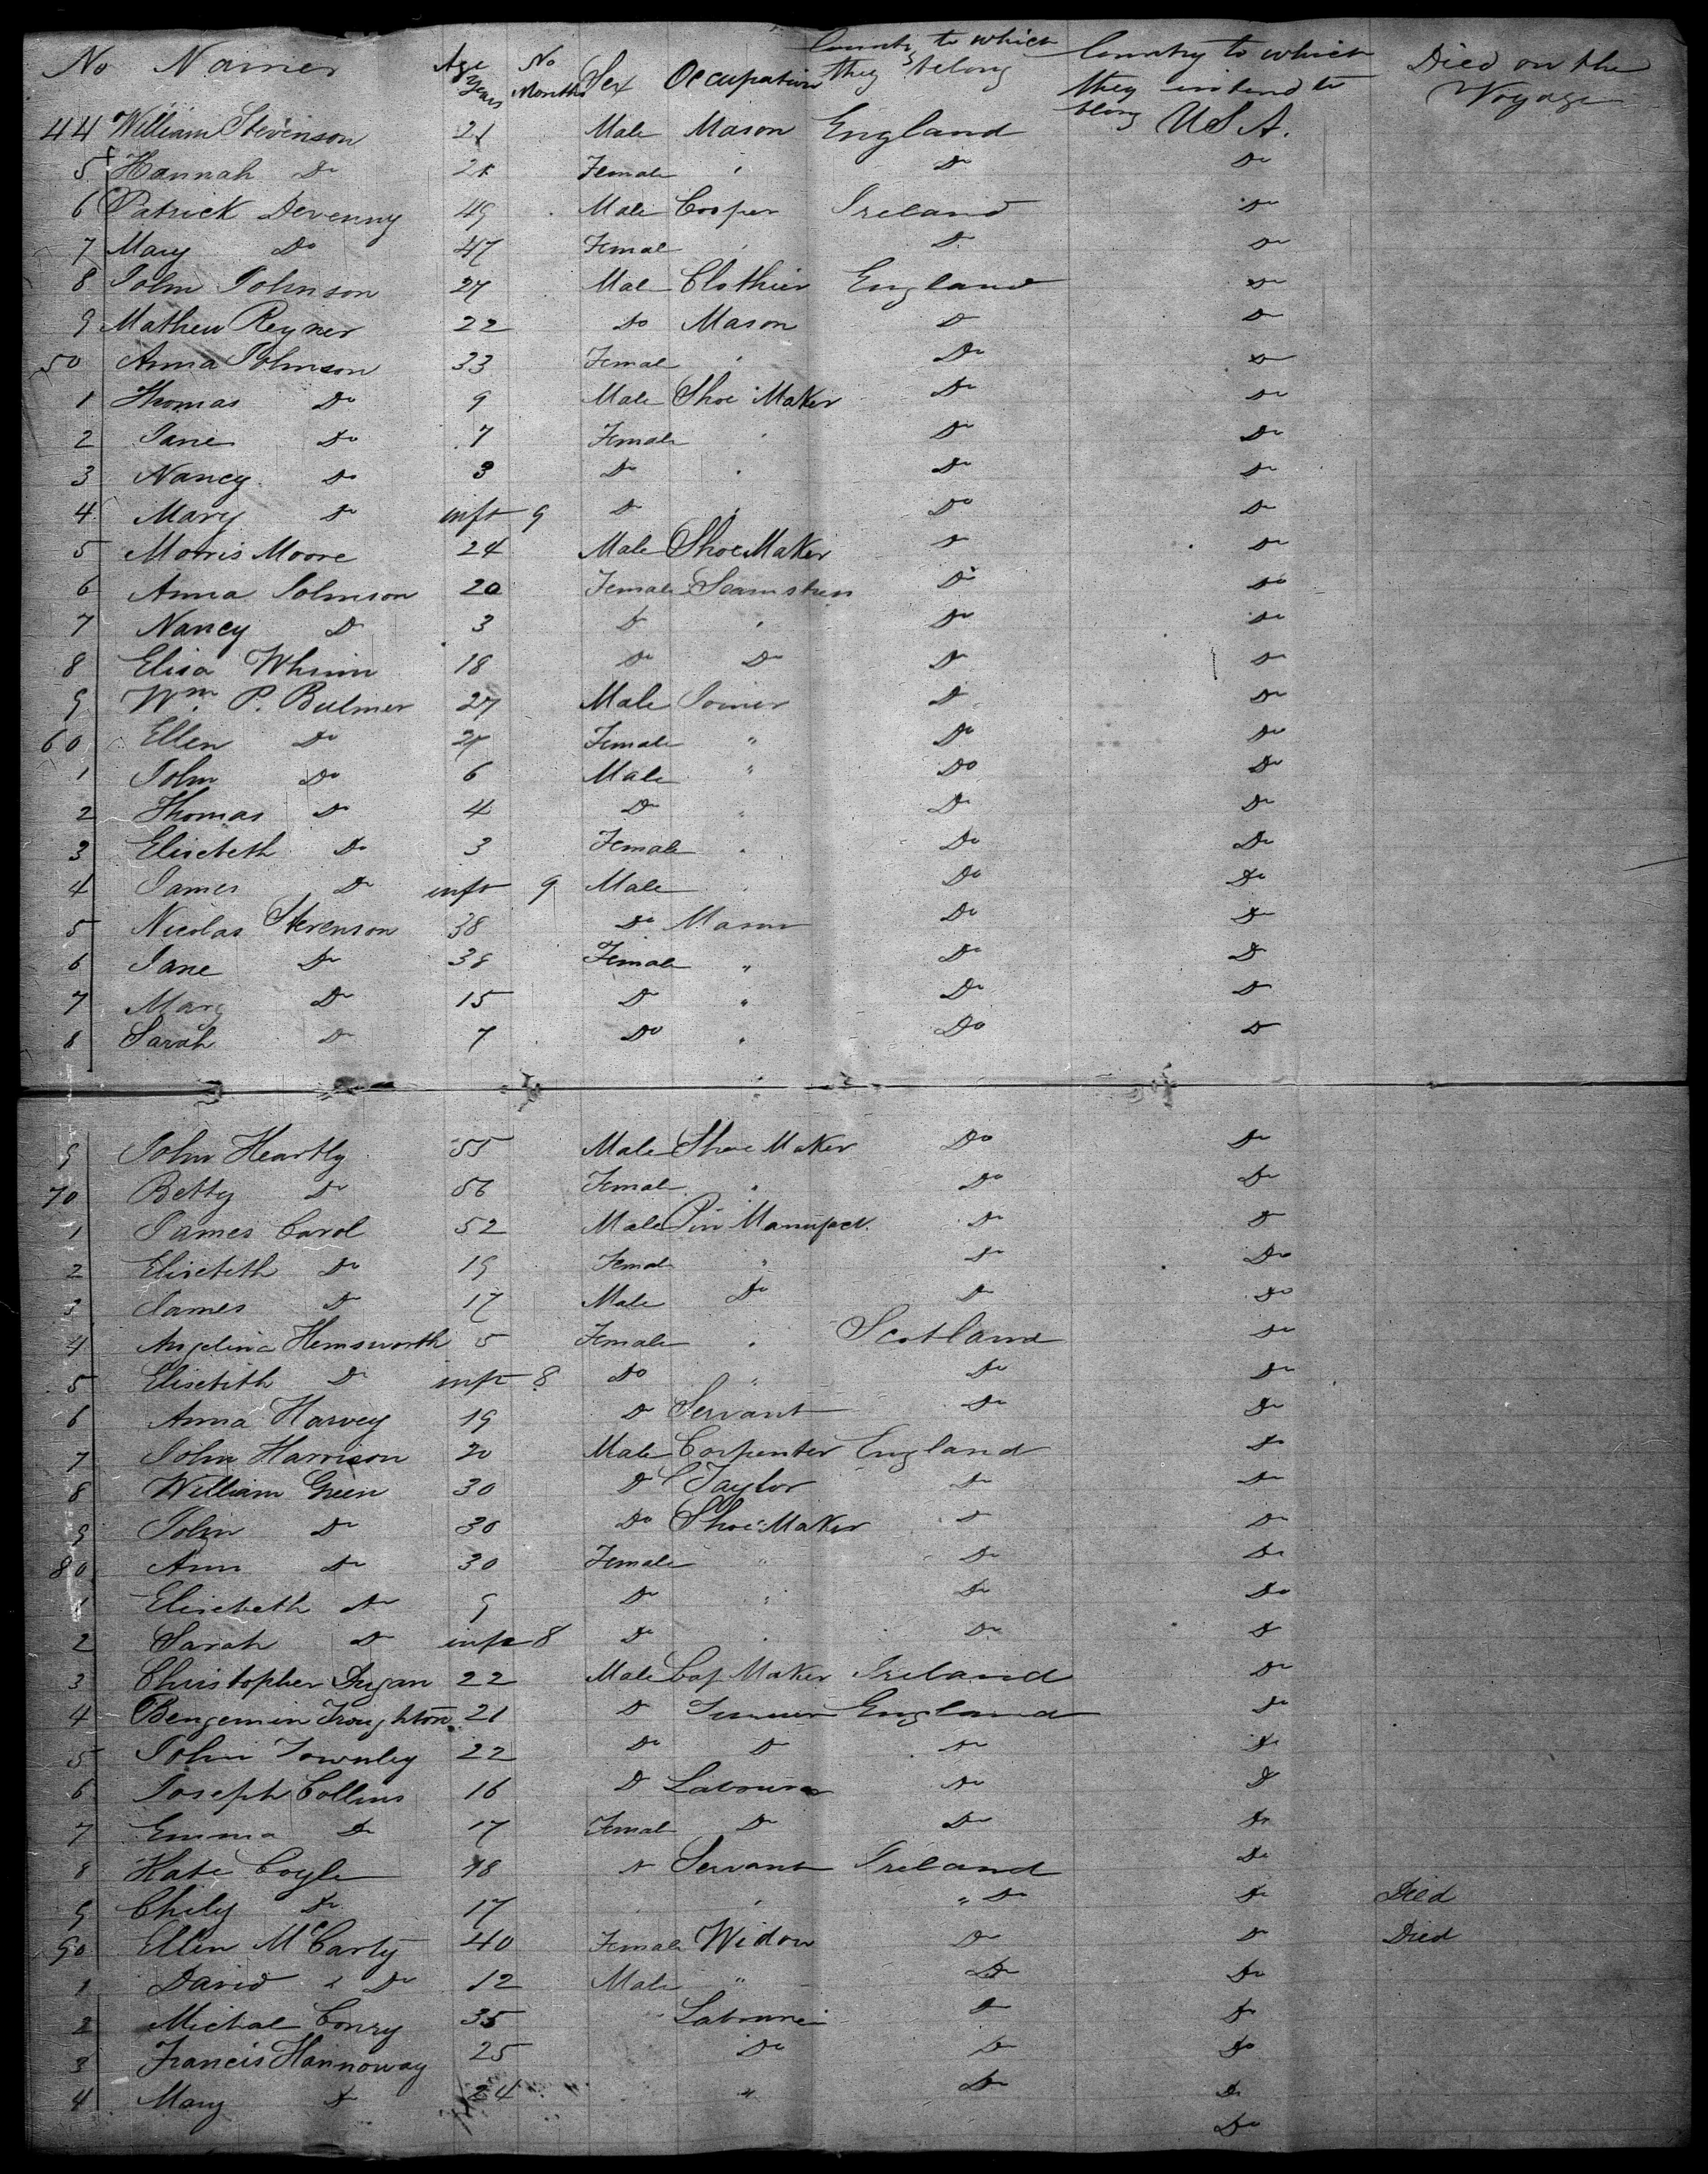 No Names Age Years No Months Sex Occupation Country to which they belong Country to which they intend to belong Died on the Voyage
44 William Stevenson 21 Male Mason England U S A.
5 Hannah Do 21 Female " Do Do
6 Patrick Devenny 49 Male Cooper Ireland Do
7 Mary Do 47 Female " Do Do
8 John Johnson 27 Male Clothier England Do
9 Mathew Reyner 22 Do Mason Do Do
50 Anna Johnson 33 Female " Do Do
1 Thomas Do 9 Male Shoe Maker Do Do
2 Jane Do 7 Female " Do Do
3 Nancy Do 3 Do " Do Do
4 Mary Do inft 9 Do " Do Do
5 Morris Moore 24 Male Shoe Maker Do Do
6 Anna Johnson 20 Female Seamstress Do Do
7 Nancy Do 3 Do " Do Do
8 Elisa 18 Do Do Do Do
9 Wm. P. Bulmer 27 Male Joiner Do Do
60 Ellen Do 27 Female " Do Do
1 John Do 6 Male " Do Do
2 Thomas Do 4 Do " Do Do
3 Elisebeth Do 3 Female " Do Do
4 James Do inft 9 Male " Do Do
5 Nicolas Stevenson 38 Do Mason Do Do
6 Jane Do 38 Female " Do Do
7 Mary Do 15 Do " Do Do
8 Sarah Do 7 Do " Do Do
9 John Heartly 55 Male Shoe Maker Do Do
70 Betty Do 56 Female " Do Do
1 James Carol 52 Male Pin Manufact. Do Do
2 Elisebeth Do 19 Female " Do Do
3 James Do 17 Male Do Do Do
4 Angelina Hemsworth 5 Female " Scotland Do
5 Elisebeth Do inft 8 Do " Do Do
6 Anna Harvey 19 Do Servant Do Do
7 John Harrison 20 Male Carpenter England Do
8 William Green 30 Do Taylor Do Do
9 John Do 30 Do Shoe Maker Do Do
80 Ann Do 30 Female " Do Do
1 Elisebeth Do 9 Do " Do Do
2 Sarah Do inft 8 Do " Do Do
3 Christopher Dugan 22 Male Cap Maker Ireland Do
4 Bengemin Troughton 21 Do England Do
5 John Townley 22 Do Do Do Do
6 Joseph Collins 16 Do Labourer Do Do
7 Emma Do 17 Female Do Do Do
8 Kate Coyle 18 Do Servant Ireland Do
9 Do 17 " " Do Do Died
90 Ellen McCarty 40 Female Widow Do Do Died
1 David Do 12 Male " Do Do
2 Michal Conry 35 Labourer Do Do
3 Francis Hannoway 25 Do Do Do
4 Mary Do 24 " Do Do
Do